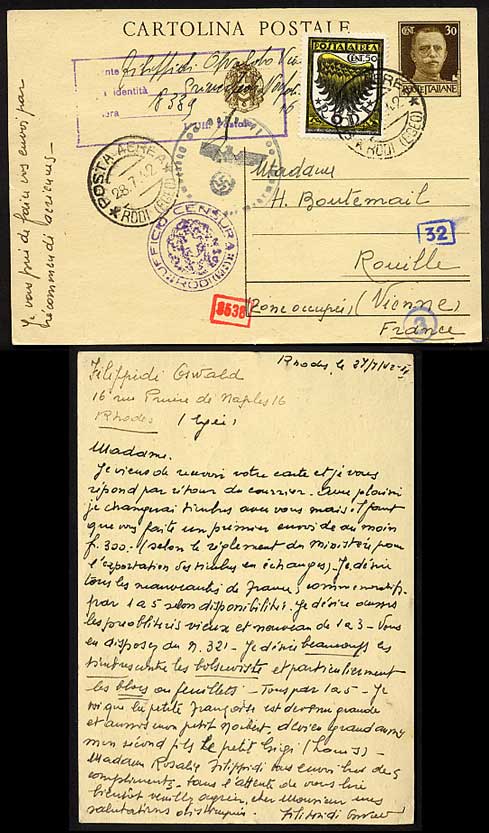 CARTOLINA POSTALE
30
CENT.
POSTE ITALIANE
POSTA AEREA
CENT. 50
Filiffidi
8389
Uff. Postale
POSTA AEREA
28.7.42
RODI (EGEO)
RODI (EGEO)
UFFICIO CENSURA
RODI
Je vous prie de faire vos envois par
recommandé aériennes -
Madame
H. Boutemail
32
Rouillé
8538
(Zone occupée) (Vienne)
France
3
Rhodes, le 27/7/42
Filippidi Oswald
16 rue Prince de Naples 16
Rhodes (Egée)
Madame.
Je viens de recevoir votre carte et je vous
répond par retour du courrier. Avec plaisir
je changerai timbres avec vous mais il faut
que vous faite un premier envoi de au moin
f. 300. (selon le règlement du Ministère pour
l'exportation des timbres en échanges). Je désire
tous les nouveautés de France, commémoratifs
par 1 à 5 selon disponibilité. Je désire aussi
les préoblitérés vieux et nouveau de 1 à 3 - Vous
en disposez du n. 321. Je désire beaucoup les
timbres contre les bolscevistes et particulièrement
les blocs ou feuillets - Tous par 1 à 5 - Je
voi que la petite Françoise est devenu grande
et aussi mon petit Norbert, devien grand aussi
mon second fils le petit Gigi (Louis) -
Madame Rosalie Filippidi vous envoi bes de
compliments. Dans l'attente de vous lire
bientôt veuillez agréer, cher Monsieur mes
salutations distinguées. Filippidi Oswald